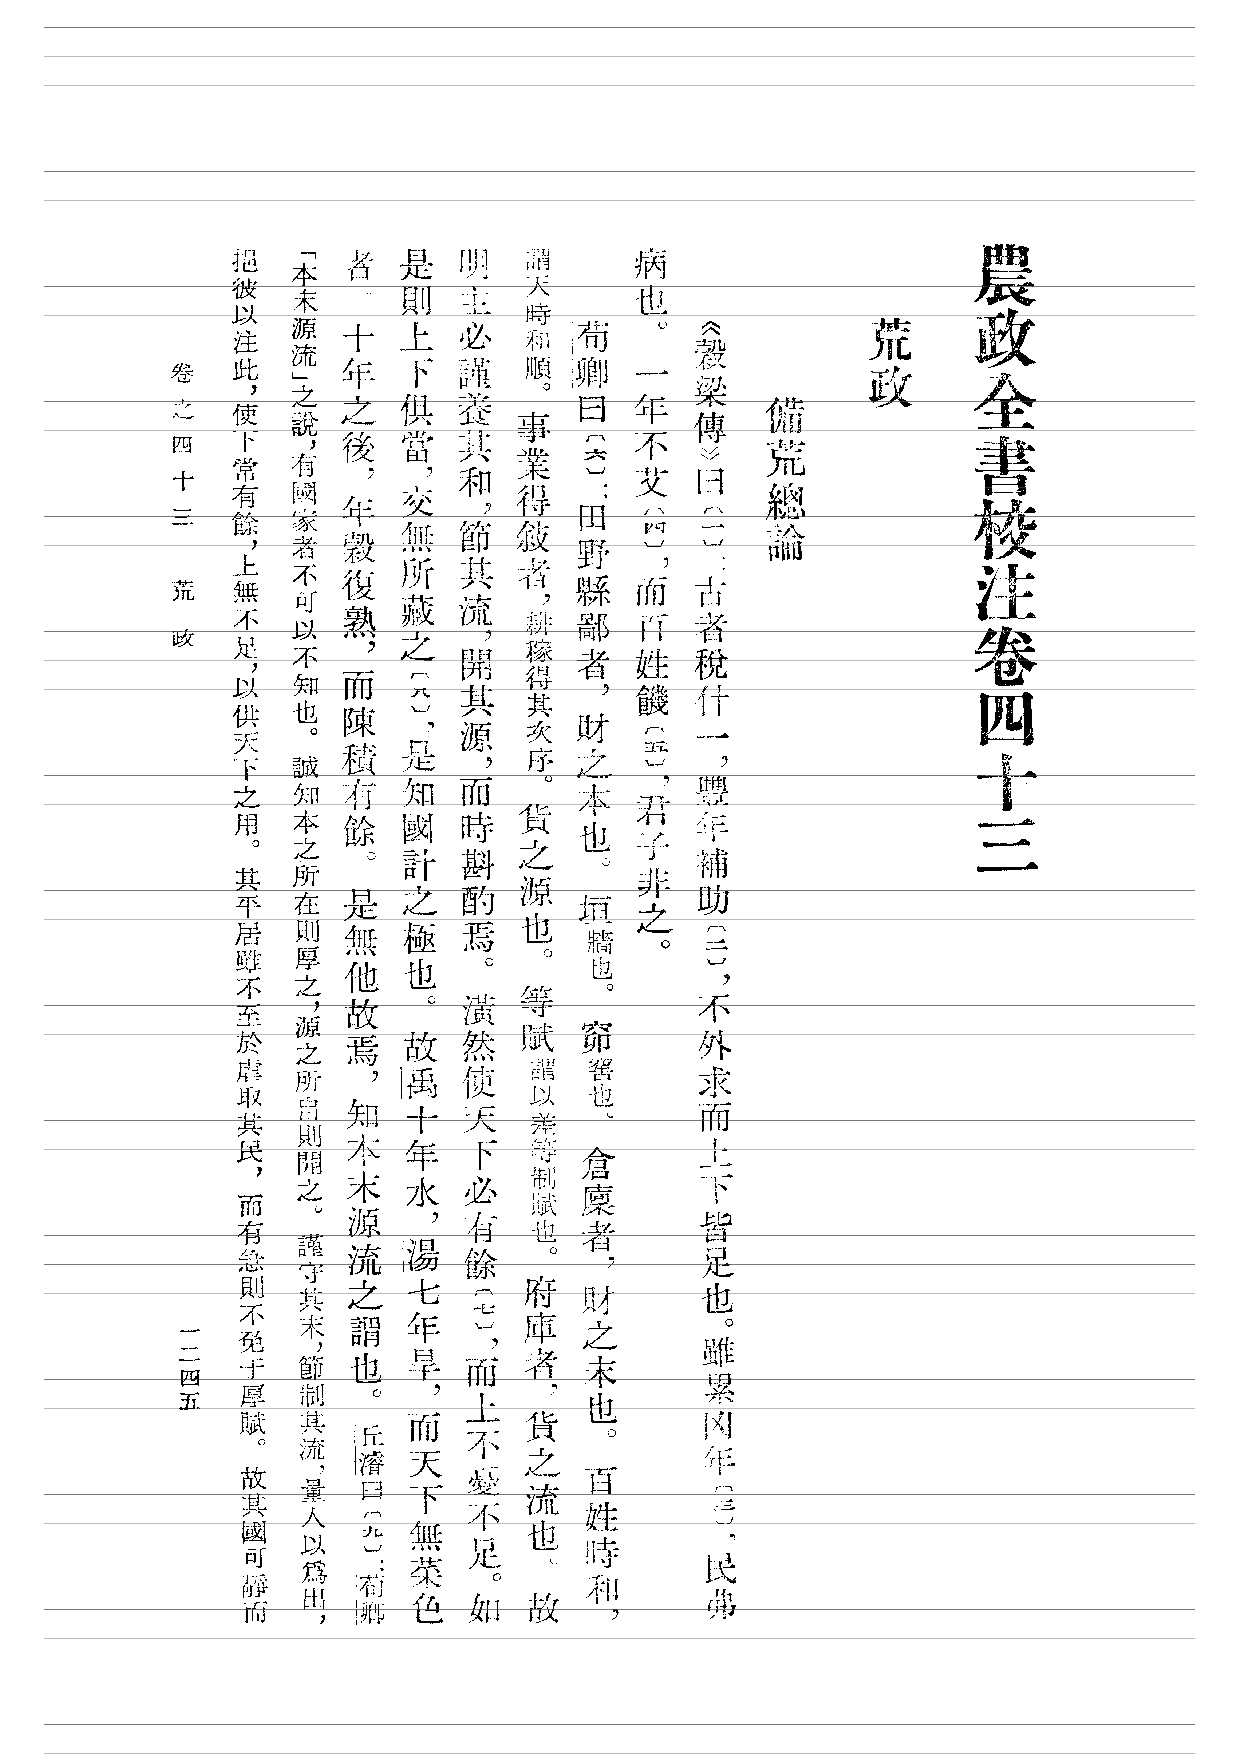 農政全書校注卷四十三
荒政
備荒總論
《穀梁傳》曰〔一〕：古者稅什一，豐年補助〔二〕，不外求而上下皆足也。雖累凶年〔三〕，民弗
病也。一年不艾〔四〕，而百姓饑〔五〕，君子非之。
荀卿曰〔六〕：田野縣鄙者，財之本也。垣牆也。窌窖也。倉廩者，財之末也。百姓時和，
謂天時和順。事業得敍者，耕稼得其次序。貨之源也。等賦謂以差等制賦也。府庫者，貨之流也。故
明主必謹養其和，節其流，開其源，而時斟酌焉。潢然使天下必有餘〔七〕，而上不憂不足。如
是則上下俱富，交無所藏之〔八〕，是知國計之極也。故禹十年水，湯七年旱，而天下無菜色
者。十年之後，年穀復熟，而陳積有餘。是無他故焉，知本末源流之謂也。丘濬曰〔九〕：荀卿
「本末源流」之說，有國家者不可以不知也。誠知本之所在則厚之，源之所自則開之。謹守其末，節制其流，量入以爲出，
挹彼以注此，使下常有餘，上無不足，以供天下之用。其平居雖不至於虐取其民，而有急則不免于厚賦。故其國可靜而
卷之四十三　荒政
一二四五